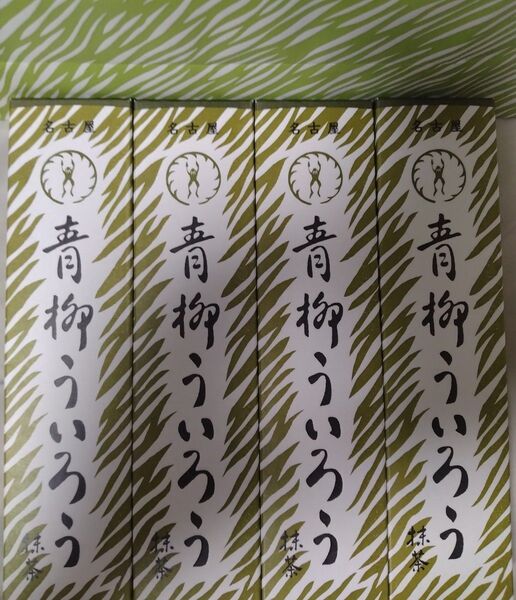 名古屋
青柳ういろう
抹茶
名古屋
青柳ういろう
抹茶
名古屋
青柳ういろう
抹茶
名古屋
青柳ういろう
抹茶